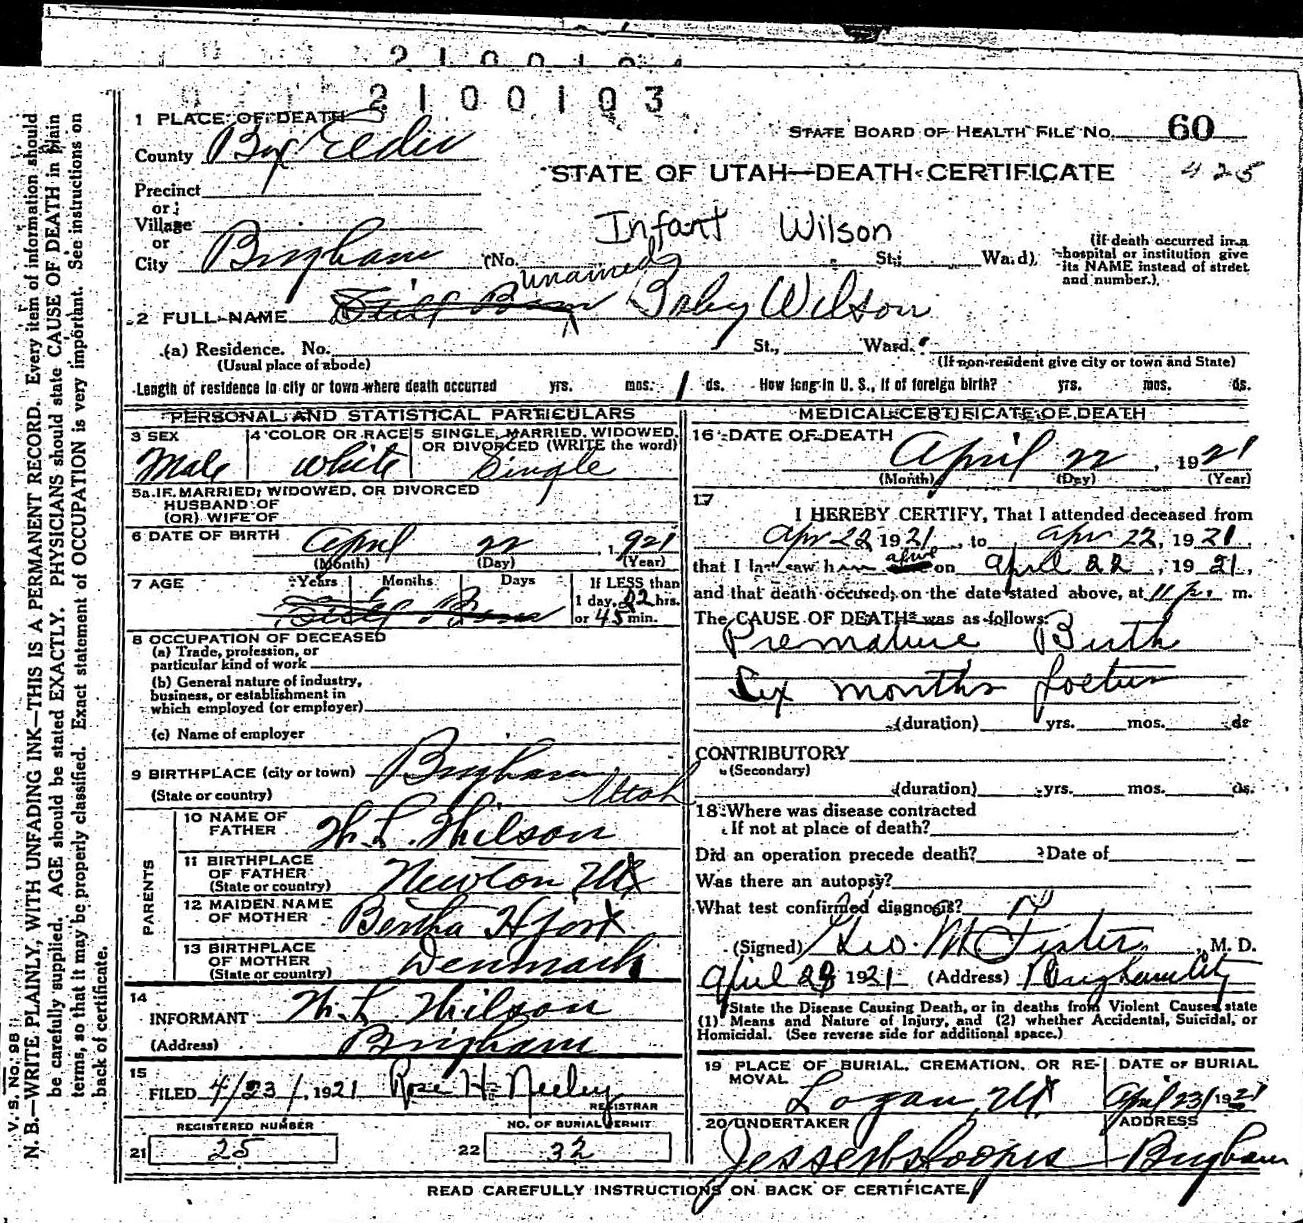 2100103
1 PLACE OF DEATH
STATE BOARD OF HEALTH FILE NO. 60
County Box Elder
STATE OF UTAH—DEATH CERTIFICATE 425
Precinct
or
Village
or
Infant Wilson
City Brigham (No. St.; Ward)
(If death occurred in a hospital or institution give its NAME instead of street and number.)
unamed
2 FULL NAME Still Born Baby Wilson
(a) Residence. No. St., Ward.
(Usual place of abode) (If non-resident give city or town and State)
Length of residence in city or town where death occurred yrs. mos. 1 ds. How long in U. S., if of foreign birth? yrs. mos. ds.
PERSONAL AND STATISTICAL PARTICULARS
3 SEX 4 COLOR OR RACE 5 SINGLE, MARRIED, WIDOWED, OR DIVORCED (WRITE the word)
Male White Single
5a IF MARRIED, WIDOWED, OR DIVORCED
HUSBAND OF
(OR) WIFE OF
6 DATE OF BIRTH April 22, 1921
(Month) (Day) (Year)
7 AGE Years Months Days If LESS than
1 day, 22 hrs.
Still Born or 45 min.
8 OCCUPATION OF DECEASED
(a) Trade, profession, or
particular kind of work
(b) General nature of industry,
business, or establishment in
which employed (or employer)
(c) Name of employer
9 BIRTHPLACE (city or town) Brigham
(State or country) Utah
PARENTS
10 NAME OF
FATHER W. L. Wilson
11 BIRTHPLACE
OF FATHER Newton Ut
(State or country)
12 MAIDEN NAME
OF MOTHER Bertha Hjort
13 BIRTHPLACE
OF MOTHER Denmark
(State or country)
14
INFORMANT W. L. Wilson
(Address) Brigham
15
FILED 4/23/, 1921 Rose H. Neeley
REGISTRAR
REGISTERED NUMBER NO. OF BURIAL PERMIT
21 25 22 32
MEDICAL CERTIFICATE OF DEATH
16 DATE OF DEATH
April 22, 1921
(Month) (Day) (Year)
17
I HEREBY CERTIFY, That I attended deceased from
Apr 22 1921, to Apr 22, 1921,
that I last saw him alive on April 22, 1921,
and that death occured, on the date stated above, at m.
The CAUSE OF DEATH* was as follows:
Premature Birth
Six months foetus
(duration) yrs. mos. ds
CONTRIBUTORY
(Secondary)
(duration) yrs. mos. ds.
18 Where was disease contracted
If not at place of death?
Did an operation precede death? Date of
Was there an autopsy?
What test confirmed diagnosis?
(Signed) Geo. M Fister, M. D.
April 23 1921 (Address) Brigham City
*State the Disease Causing Death, or in deaths from Violent Causes, state
(1) Means and Nature of Injury, and (2) whether Accidental, Suicidal, or
Homicidal. (See reverse side for additional space.)
19 PLACE OF BURIAL, CREMATION, OR RE- DATE OF BURIAL
MOVAL
Logan, Ut April 23/1921
20 UNDERTAKER ADDRESS
Brigham
READ CAREFULLY INSTRUCTIONS ON BACK OF CERTIFICATE
V. S. No. 98
N. B.—WRITE PLAINLY, WITH UNFADING INK—THIS IS A PERMANENT RECORD. Every item of information should
be carefully supplied. AGE should be stated EXACTLY. PHYSICIANS should state CAUSE OF DEATH in plain
terms, so that it may be properly classified. Exact statement of OCCUPATION is very important. See instructions on
back of certificate.